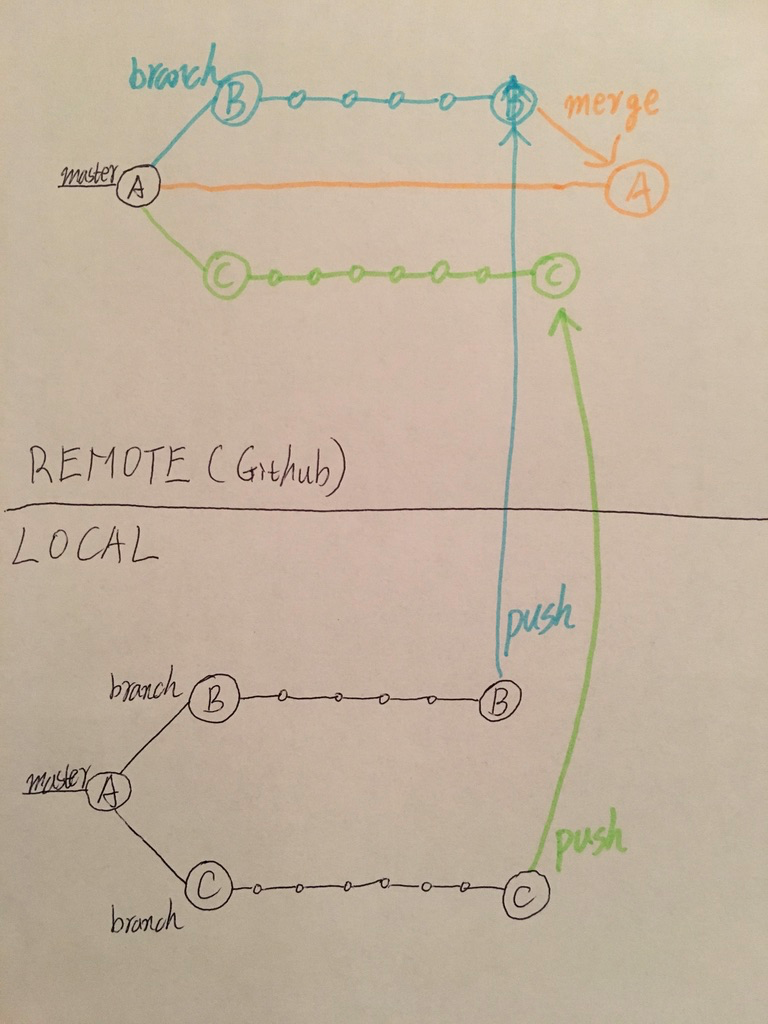 branch
B
B
merge
master
A
A
C
C
REMOTE (Github)
LOCAL
push
branch
B
B
master
A
push
C
C
branch